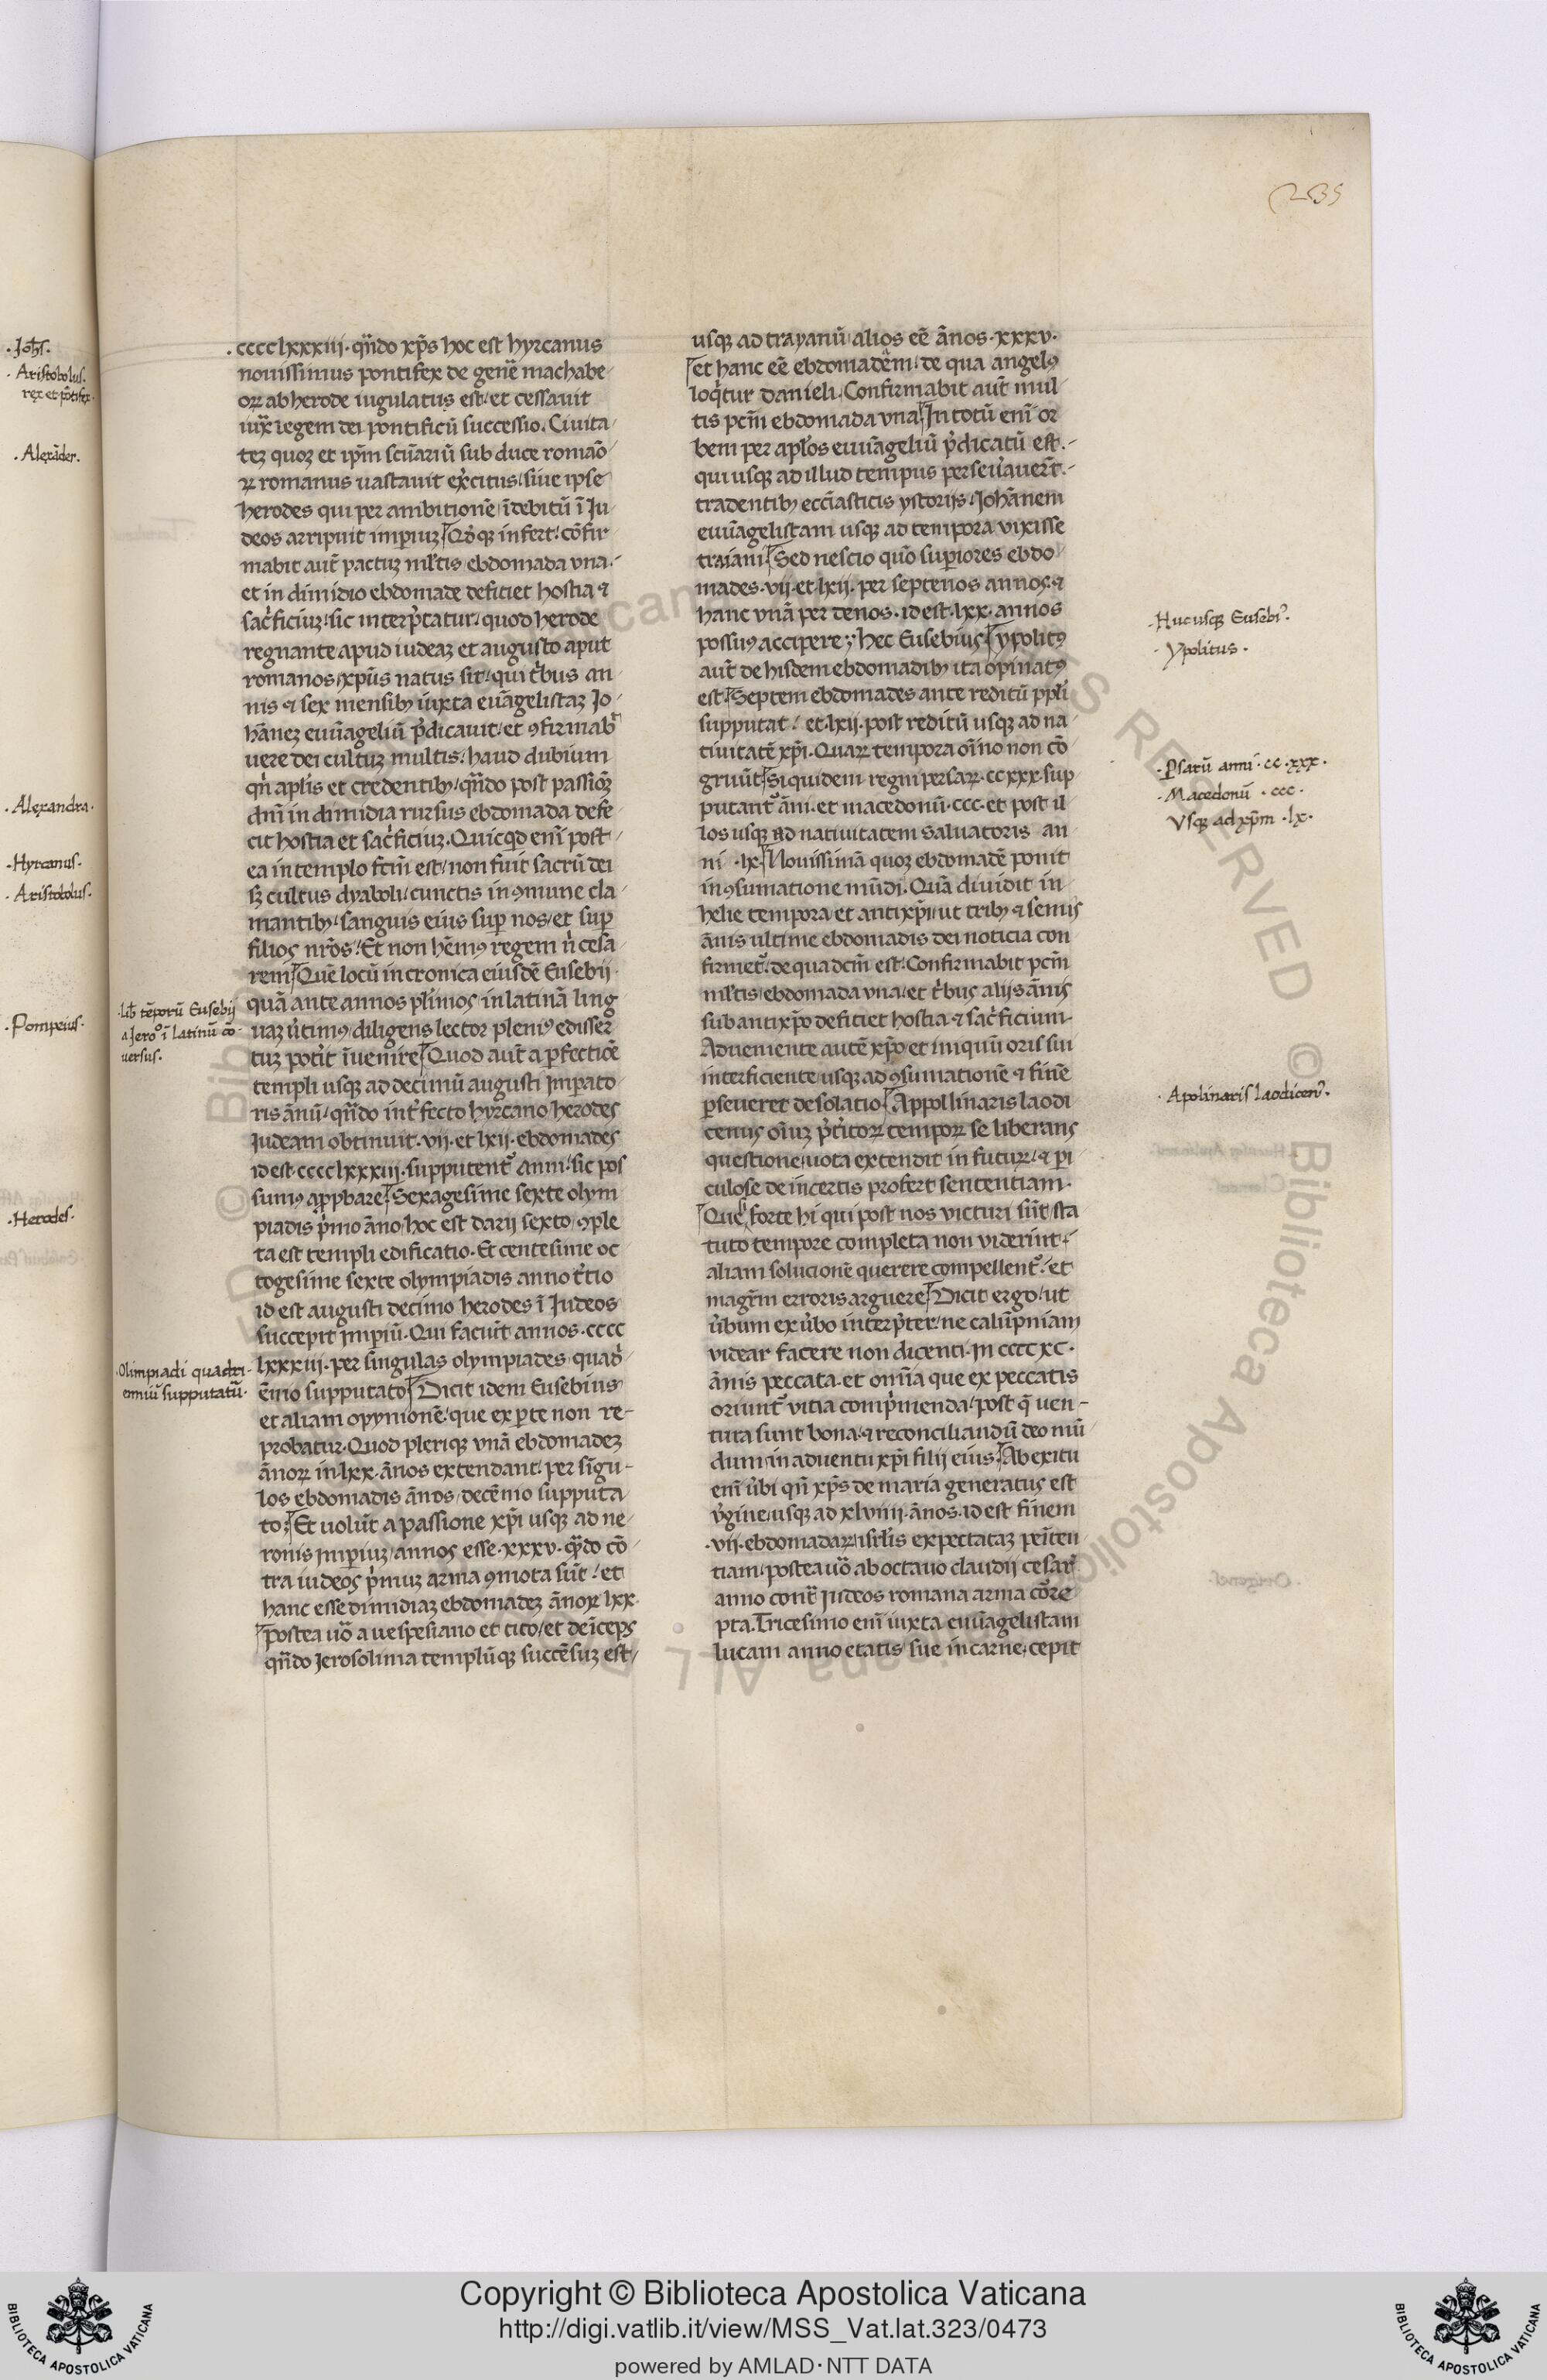 235
·Joh̄s·
·Aristobolus·
rex et põtifex·
·Alexãder·
·Alexandra·
·Hyrcanus·
·Aristobolus·
·Pompeius·
·Herodes·
·cccclxxxiii· qñdo xp̄s hoc est hyrcanus
nouissimus pontifex de gen̄e machabe
oꝝ ab herode iugulatus est/ et cessauit
iux̄ legem dei pontificũ successio. Ciuita
teꝫ quoꝫ et ip̄m scũariũ sub duce romão
ꝝ romanus uastauit ex̾citus/ siue ipse
herodes qui per ambitionẽ ĩdebitũ ĩ Iu
deos arripuit imp̱iuꝫ/ Qͦqꝫ infert/ cõfir
mabit aut̃ pactuꝫ ml̃tis ebdomada vna·
et in dimidio ebdomade deficiet hostia ⁊
sac̾ficiuꝫ/ sic interp̃tatur/ quod herode
regnante apud iudeaꝫ et augusto aput
romanos/ xp̄us natus sit/ qui t̾bus an
nis ⁊ sex mensibꝫ iuxta euãgelistaꝫ Io
hãneꝫ euũageliũ p̃dicauit/ et ꝯfirmab̾
uere dei cultuꝫ multis/ haud dubium
qn̾ aplĩs et credentibꝫ/ qñdo post passiõꝫ
dñi in dimidia rursus ebdomada defe
cit hostia et sac̾ficiuꝫ. Quicqd enĩ post
ea in templo fcm̃ est/ non fuit sacrũ dei
sꝫ cultus dyaboli/ cunctis in ꝯmune cla
mantibꝫ/ sanguis eius sup̱ nos/ et sup̱
filios nr̃os/ Et non hẽmꝰ regem n̾ cesa
rem/ Quẽ locũ in cronica eiusdẽ Eusebij
quã ante annos pl̾imos/ in latinã ling
uaꝫ ũtimꝰ/ diligens lector pleniꝰ edisser
tuꝫ pot̾it ĩuenire/ Quod aut̃ a p̱fectiõe
templi usqꝫ ad decimũ augusti Imp̱ato
ris ãnũ/ qñdo int̾fecto hyrcano/ herodes
Iudeam obtinuit. vij. et lxij. ebdomades
id est cccclxxxiij. supputentᷣ anni/ sic pos
sumꝰ app̱bare/ Sexagesime sexte olym
piadis p̾mo ãno/ hoc est darij sexto/ ꝯple
ta est templi edificatio. Et centesime oc
togesime sexte olympiadis anno t̾tio
id est augusti decimo herodes ĩ Iudeos
succepit imp̱iũ. Qui faciũt annos· cccc
lxxxiii· per singulas olympiades/ quad̾
ẽnio supputato/ Dicit idem Eusebius
et aliam opynionẽ/ que ex p̱te non re-
probatur. Quod pleriqꝫ vnã ebdomadeꝫ
ãnoꝝ in lxx· ãnos extendant/ per sĩgu-
los ebdomadis ãnos/ decẽnio supputa
to/ Et uolũt a passione xp̄i usqꝫ ad ne
ronis imp̱iuꝫ/ annos esse· xxxv· qñdo cõ
tra iudeos p̾muꝫ arma ꝯmota sũt/ et
hanc esse dimidiaꝫ ebdomadeꝫ ãnoꝝ lxx·
Postea uõ a uespesiano et tito/ et deĩceps
qñdo Ierosolima templũqꝫ succẽsuꝫ est/
·lib̃ tẽporũ Eusebij
a Ieroº ĩ latinũ cõ-
uersus·
·Olimpiadi quadri-
enniũ supputatũ·
usqꝫ ad trayanũ/ alios eẽ ãnos· xxxv·
et hanc eẽ ebdomadẽm/ de qua angelꝰ
loq̾tur danieli/ Confirmabit aut̃ mul
tis pcm̃ ebdomada vna/ In totũ enĩ or
bem per apl̃os euuãgeliũ p̃dicatũ est·
qui usqꝫ ad illud tempus perseũauer̃t·
tradentibꝫ eccĩasticis ystorijs/ Iohãnem
euuãgelistam usqꝫ ad tempora vixisse
traiani/ Sed nescio quõ sup̱iores ebdo
mades· vij· et lxij· per septenos annos/ ⁊
hanc vnã per denos· id est· lxx· annos
possimꝰ accipere/ hec Eusebius/ ypolitꝰ
aut̃ de hisdem ebdomadibꝫ ita opinatꝰ
est/ Septem ebdomades ante reditũ ppl̃i
supputat/ et lxij· post reditũ usqꝫ ad na
tiuitatẽ xp̄i· Quaꝝ tempora oĩno non cõ
gruũt/ Siquidem regni persaꝝ· ccxxx· sup
putantᷣ ãni· et macedonũ· ccc· et post il
los usqꝫ ad natiuitatem saluatoris an
ni ·lx· Nouissimã quoꝫ ebdomadẽ ponit
in ꝯsumatione mũdi· Quã diuidit in
helie tempora et antixp̄i/ ut tribꝫ ⁊ semis
ãnis ultime ebdomadis dei noticia con
firmetᷣ/ de qua dcm̃ est/ Confirmabit pcm̃
ml̃tis/ ebdomada vna/ et t̾bus alijs ãnis
sub antixp̄o deficiet hostia ⁊ sac̾ficium·
Adueniente autẽ xp̄o/ et iniquũ oris sui
interficiente/ usqꝫ ad ꝯsumationẽ ⁊ finẽ
p̱seueret desolatio/ Appollinaris laodi
cenus oĩuꝫ p̃titoꝝ tempoꝝ se liberans
questione/ uota extendit in futuꝝ/ ⁊ p̱i
culose de incertis profert sententiam·
Que forte hi qui post nos victuri sũt sta
tuto tempore completa non viderint/
aliam solucionẽ querere compellentᷣ/ et
magr̃m erroris arguere/ Dicit ergo/ ut
ũbum ex ũbo interp̃ter/ ne calũpniam
videar facere non dicenti· In ccccxc·
ãnis peccata· et om̃ia que ex peccatis
oriuntᷣ vitia comp̾menda/ post q̃ uen-
tura sunt bona/ ⁊ reconciliandũ deo mũ
dum in aduentu xp̄i filij eius/ Ab exitu
enĩ ũbi qñ xp̄s de maria generatus est
ṽgine/ usqꝫ ad xlviiij· ãnos· id est finem
·vij· ebdomadaꝝ/ isrl̃is expectataꝫ peĩten
tiam/ postea uõ ab octauo claudij cesar̾
anno cont̃ Iudeos romana arma cõre
pta· Tricesimo enĩ iuxta euũagelistam
lucam anno etatis sue in carne/ cepit
·Huc usqꝫ Eusebiꝰ·
·Ypolitus·
·P̱sarũ anni· cc·xxx·
·Macedonũ ·ccc·
Vsqꝫ ad xp̄m ·lx·
·Apolinaris laodicenꝰ·
Copyright © Biblioteca Apostolica Vaticana
http://digi.vatlib.it/view/MSS_Vat.lat.323/0473
powered by AMLAD·NTT DATA
BIBLIOTECA APOSTOLICA VATICANA
BIBLIOTECA APOSTOLICA VATICANA